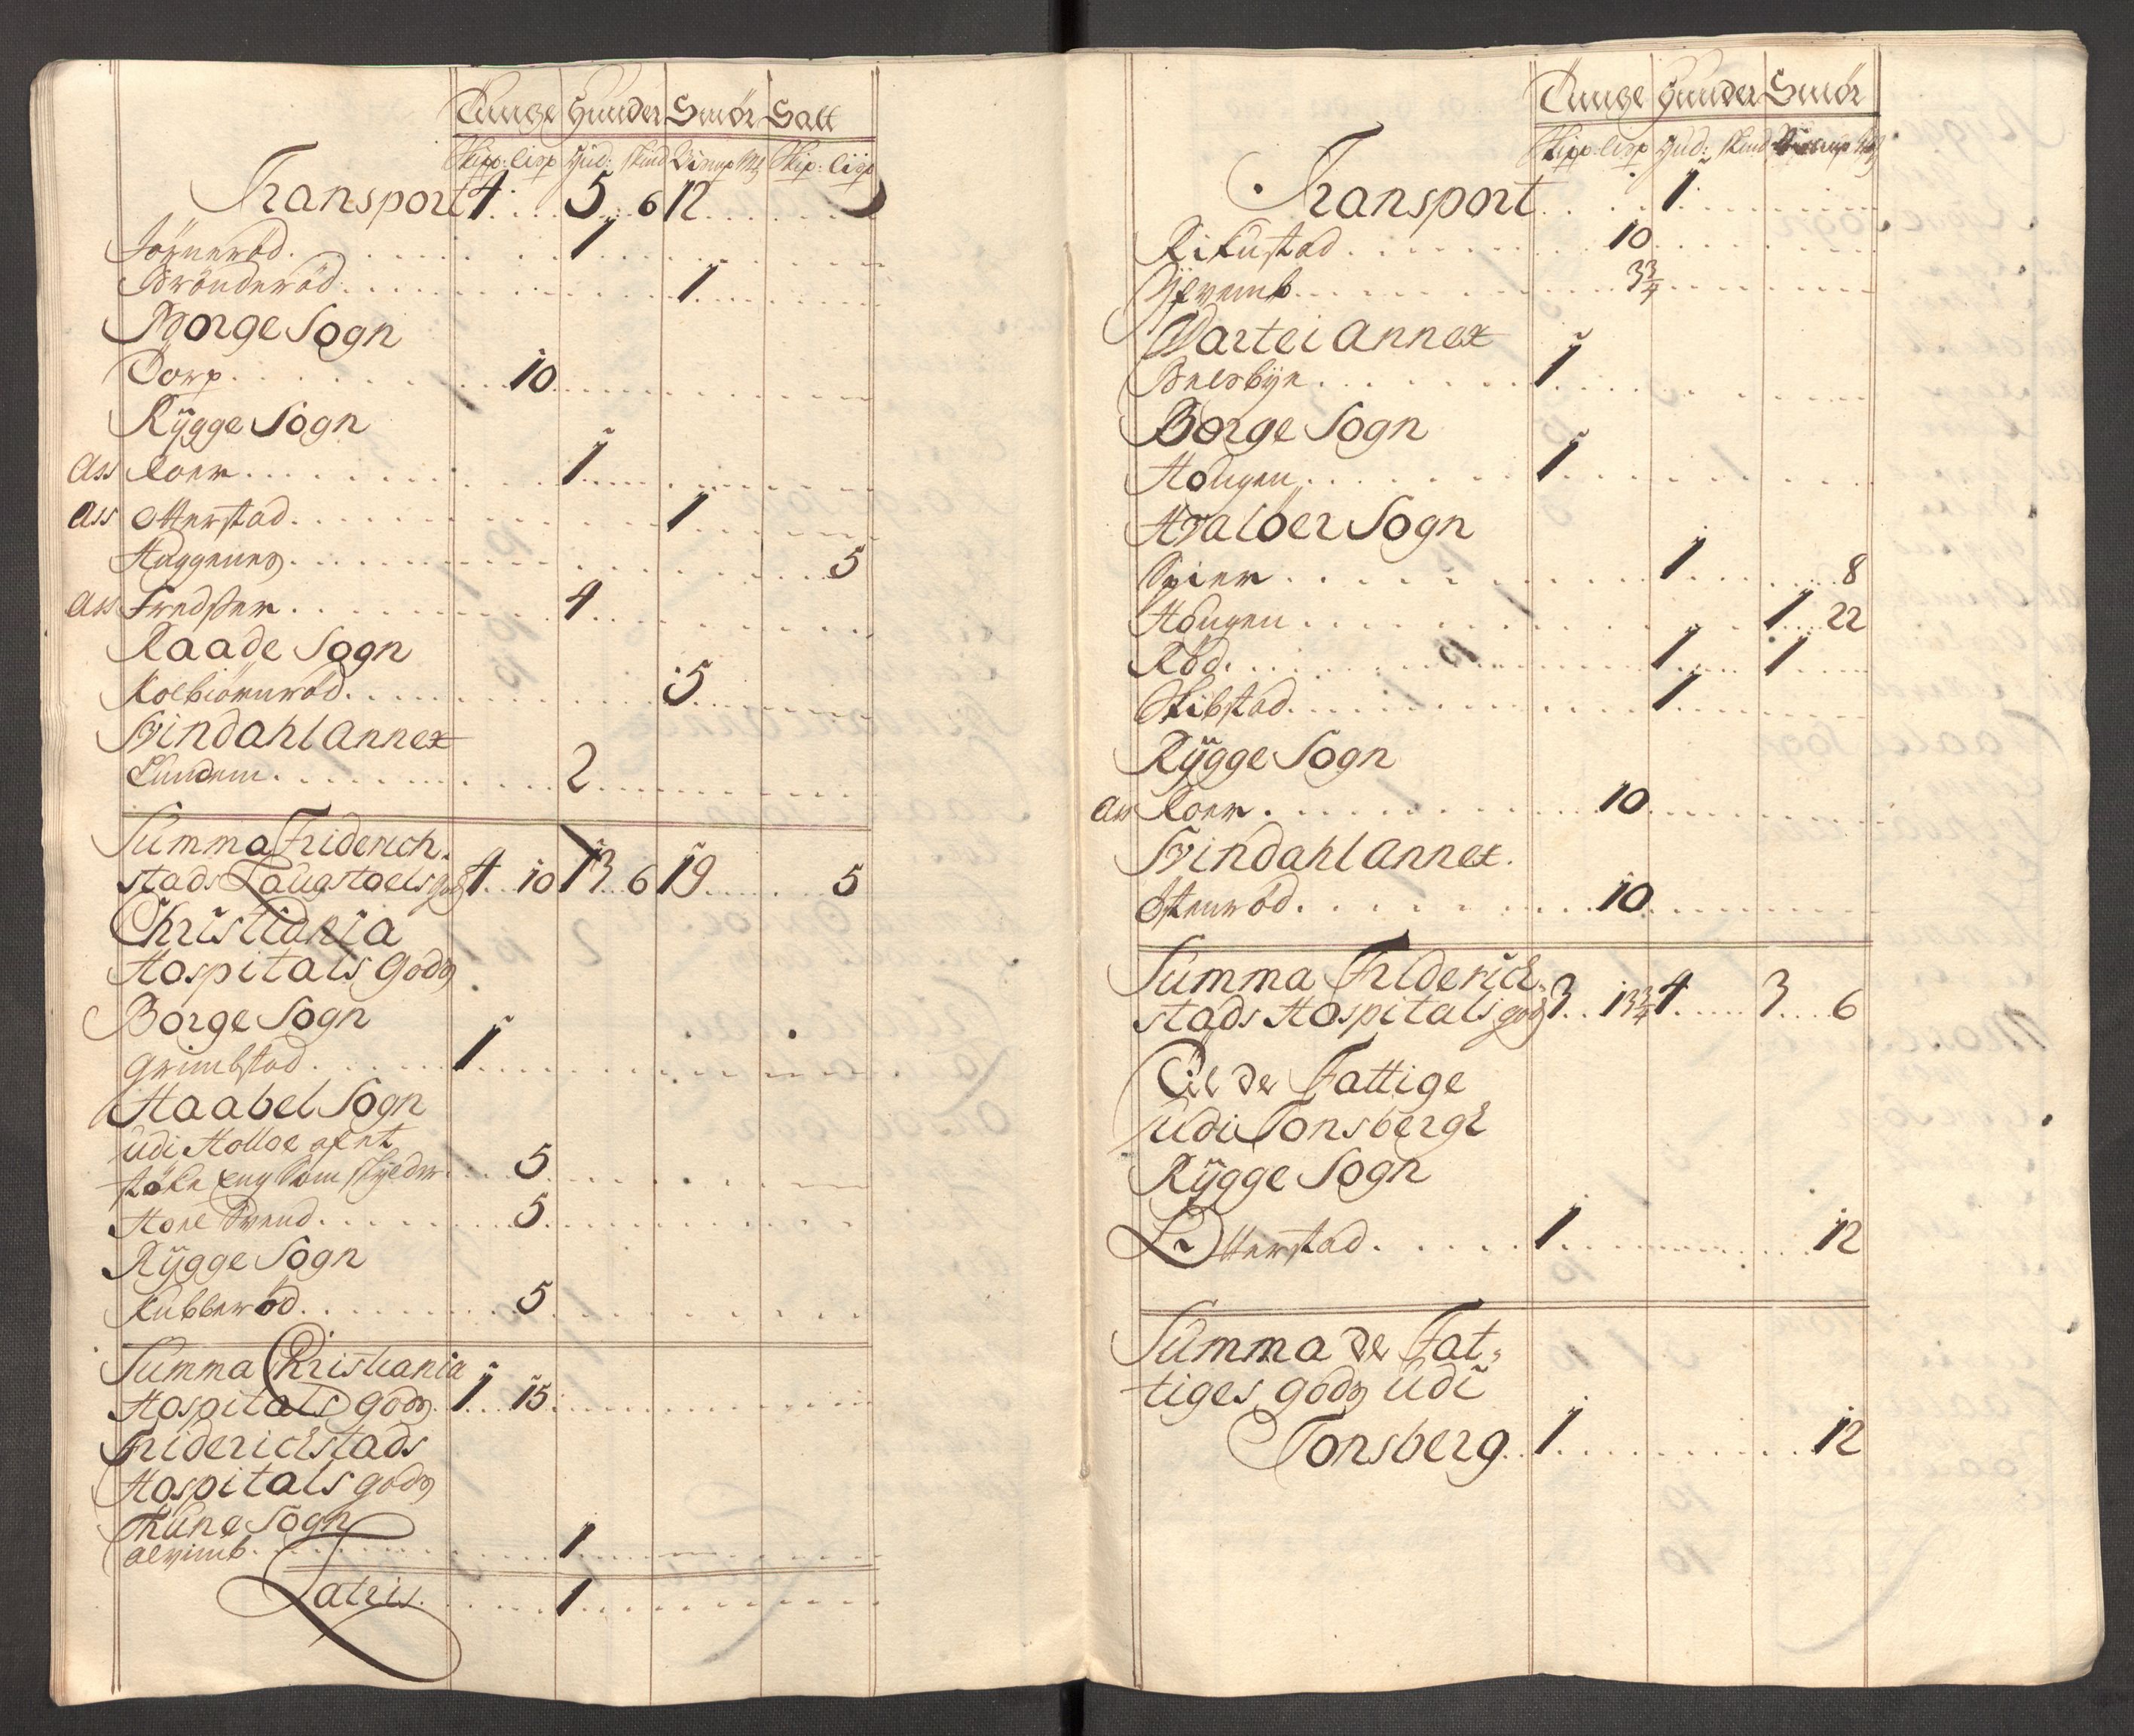 Tunge Huuder Smör Salt
Skipp: Lisp Hud: Skind Bismp Mk Skip: Lisp
Transport 4 . 5 . 6 12
Jörneröd . 1
Brönderöd . 1
Borge Sogn
Torp . 10
Rÿgge Sogn
Ass Roer . 1
Ass Otterstad . 1
Huggenes . 5
Ass Fredsker . 4
Raade Sogn
Kolbiörneröd . 5
Svindahl Annex
Lundem . 2
Summa Friderich-
stads Laugstoels godz 4 . 10 13 . 6 19 . 5
Christiania
Hospitals Godz
Borge Sogn
Grimbstad . 1
Haabel Sogn
udi Holloe af et
støke Eng som skylder . 5
Hoel Svend . 5
Rÿgge Sogn
Kubberöd . 5
Summa Christiania
Hospitals godz . 1 . 15
Friderichstads
Hospitals godz
Thune Sogn
Alvimb . 1
Latris . 1
Tunge Huuder Smör
Skipp: Lisp Hud: Skind Bismp Mk
Transport . 1
Rikustad . 10
. 3 3/4
Vartei Annex
Belsbÿe . 1
Borge Sogn
Hougen . 1
Hvalöer Sogn
Spier . 1 . 8
Hougen . 1 . 22
Röd . 1 . 1
Skibstad . 1
Rÿgge Sogn
Ass Roer . 10
Svindahl Annex.
Stenröd . 10
Summa Friderich-
stads Hospitals godz 3 . 13 3/4 4 . 3 . 6
Til de Fattige
udi Tonsberge
Rÿgge Sogn
Otterstad . 1 . 12
Summa de Fat-
tiges godz udi
Tonsberg . 1 . 12